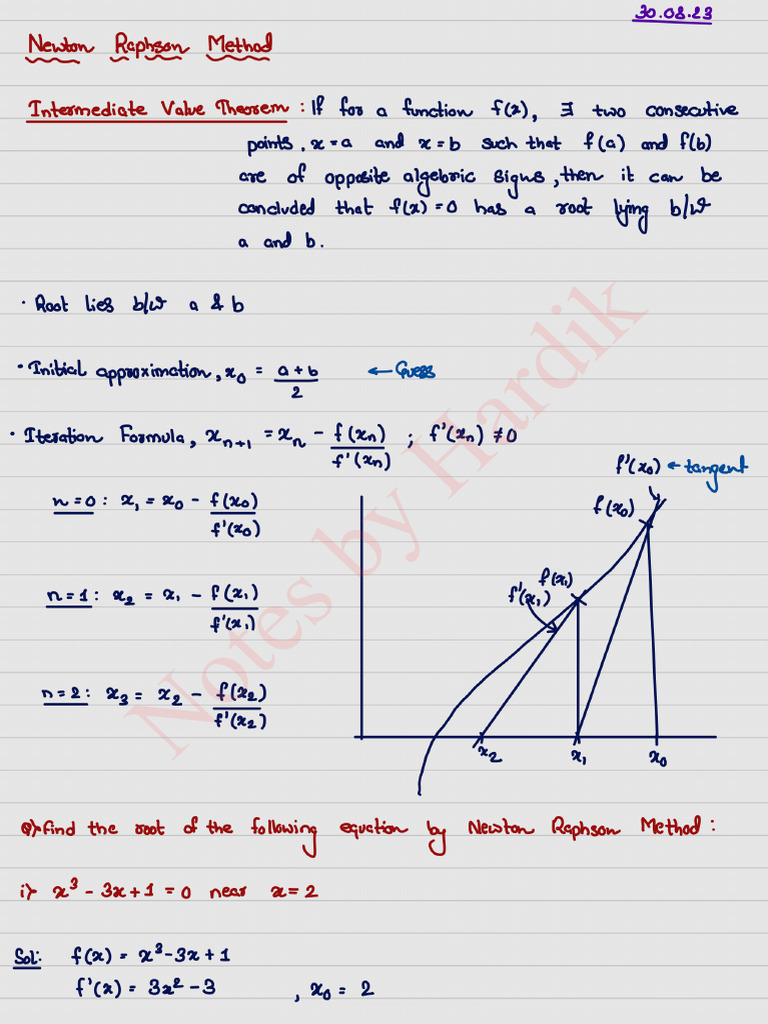 30.08.23
Newton Raphson Method
Intermediate Value Theorem : If for a function f(x), ∃ two consecutive
points, x=a and x=b such that f(a) and f(b)
are of opposite algebric signs, then it can be
concluded that f(x)=0 has a root lying b/w
a and b.
· Root lies b/w a & b
· Initial approximation, x₀ = (a+b)/2 ← Guess
· Iteration Formula, xₙ₊₁ = xₙ - f(xₙ)/f'(xₙ) ; f'(xₙ) ≠ 0
f'(x₀) ← tangent
n=0 : x₁ = x₀ - f(x₀)/f'(x₀)
f(x₀)
n=1 : x₂ = x₁ - f(x₁)/f'(x₁)
f(x₁)
f'(x₁)
n=2 : x₃ = x₂ - f(x₂)/f'(x₂)
x₂ x₁ x₀
Notes by Hardik
Q) Find the root of the following equation by Newton Raphson Method :
i) x³ - 3x + 1 = 0 near x = 2
Sol: f(x) = x³-3x+1
f'(x) = 3x²-3 , x₀ = 2